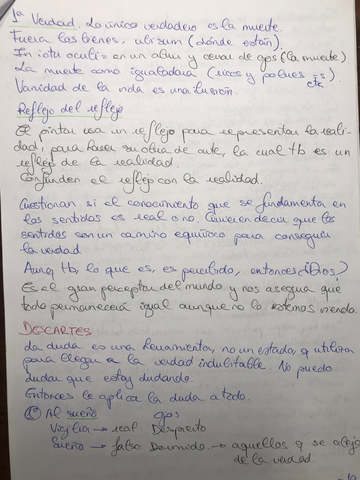 1ª Verdad. Lo único verdadero es la muerte.
Fuera las bienes, ubi sum (dónde están).
In ictu oculi = en un abrir y cerrar de ojos (la muerte)
La muerte como igualadora (ricos y pobres = s)
etc
Vanidad de la vida es una ilusión.
Reflejo del reflejo
El pintor usa un reflejo para representar la reali-
dad, para hacer su obra de arte, la cual tb es un
reflejo de la realidad.
Confunden el reflejo con la realidad.
Cuestionan si el conocimiento que se fundamenta en
los sentidos es real o no. Quieren decir que los
sentidos son un camino equívoco para conseguir
la verdad
Aunq tb, lo que es, es percibido, entonces (Dios)
Es el gran perceptor del mundo y nos asegura que
todo permanecerá igual aunque no lo estemos viendo.
DESCARTES
La duda es una herramienta, no un estado, q utiliza
para llegar a la verdad indubitable. No puedo
dudar que estoy dudando.
Entonces le aplica la duda a todo.
1º Al sueño ojos
Vigilia → real Despierto
Sueño → falso Dormido → aquellos q se aleja
de la verdad.